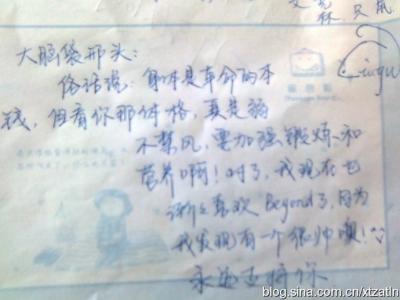 大脑袋那头：
俗话说：身体是革命的本
钱，但看你那体格，真是弱
不禁风，要加强锻炼和
营养啊！对了，我现在也
渐渐喜欢Beyond了，因为
我发现有一个很帅噢！
永远支持你
blog.sina.com.cn/xtzatln